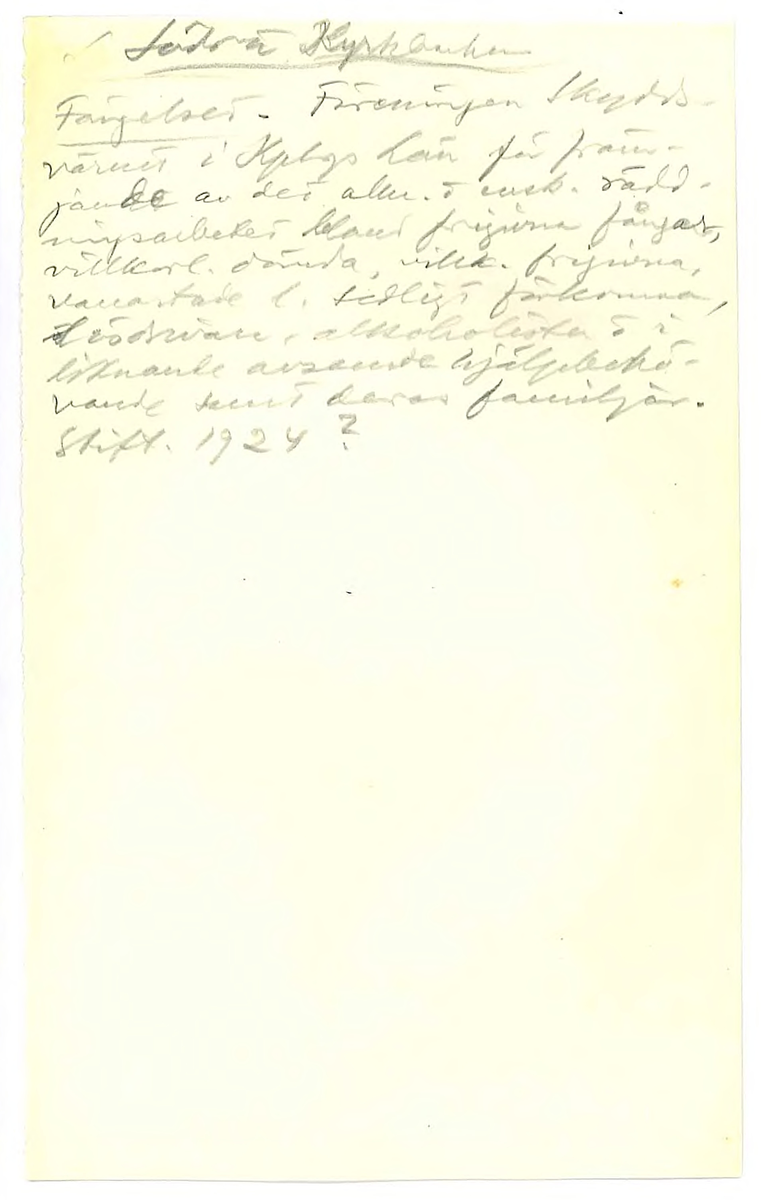 Södra Kyrkbacken
Fängelset. Föreningen Skydds-
värnet i Kpbgs län för främ-
jande av det allm. o ensk. rädd-
ningsarbetet bland frigivna fångar,
villkorl. dömda, villk. frigivna,
vanartade l. sedligt förkomna,
lösdrivare, alkoholister o i
liknande avseende hjälpbehö-
vande samt deras familjer.
Stift. 1924 ?